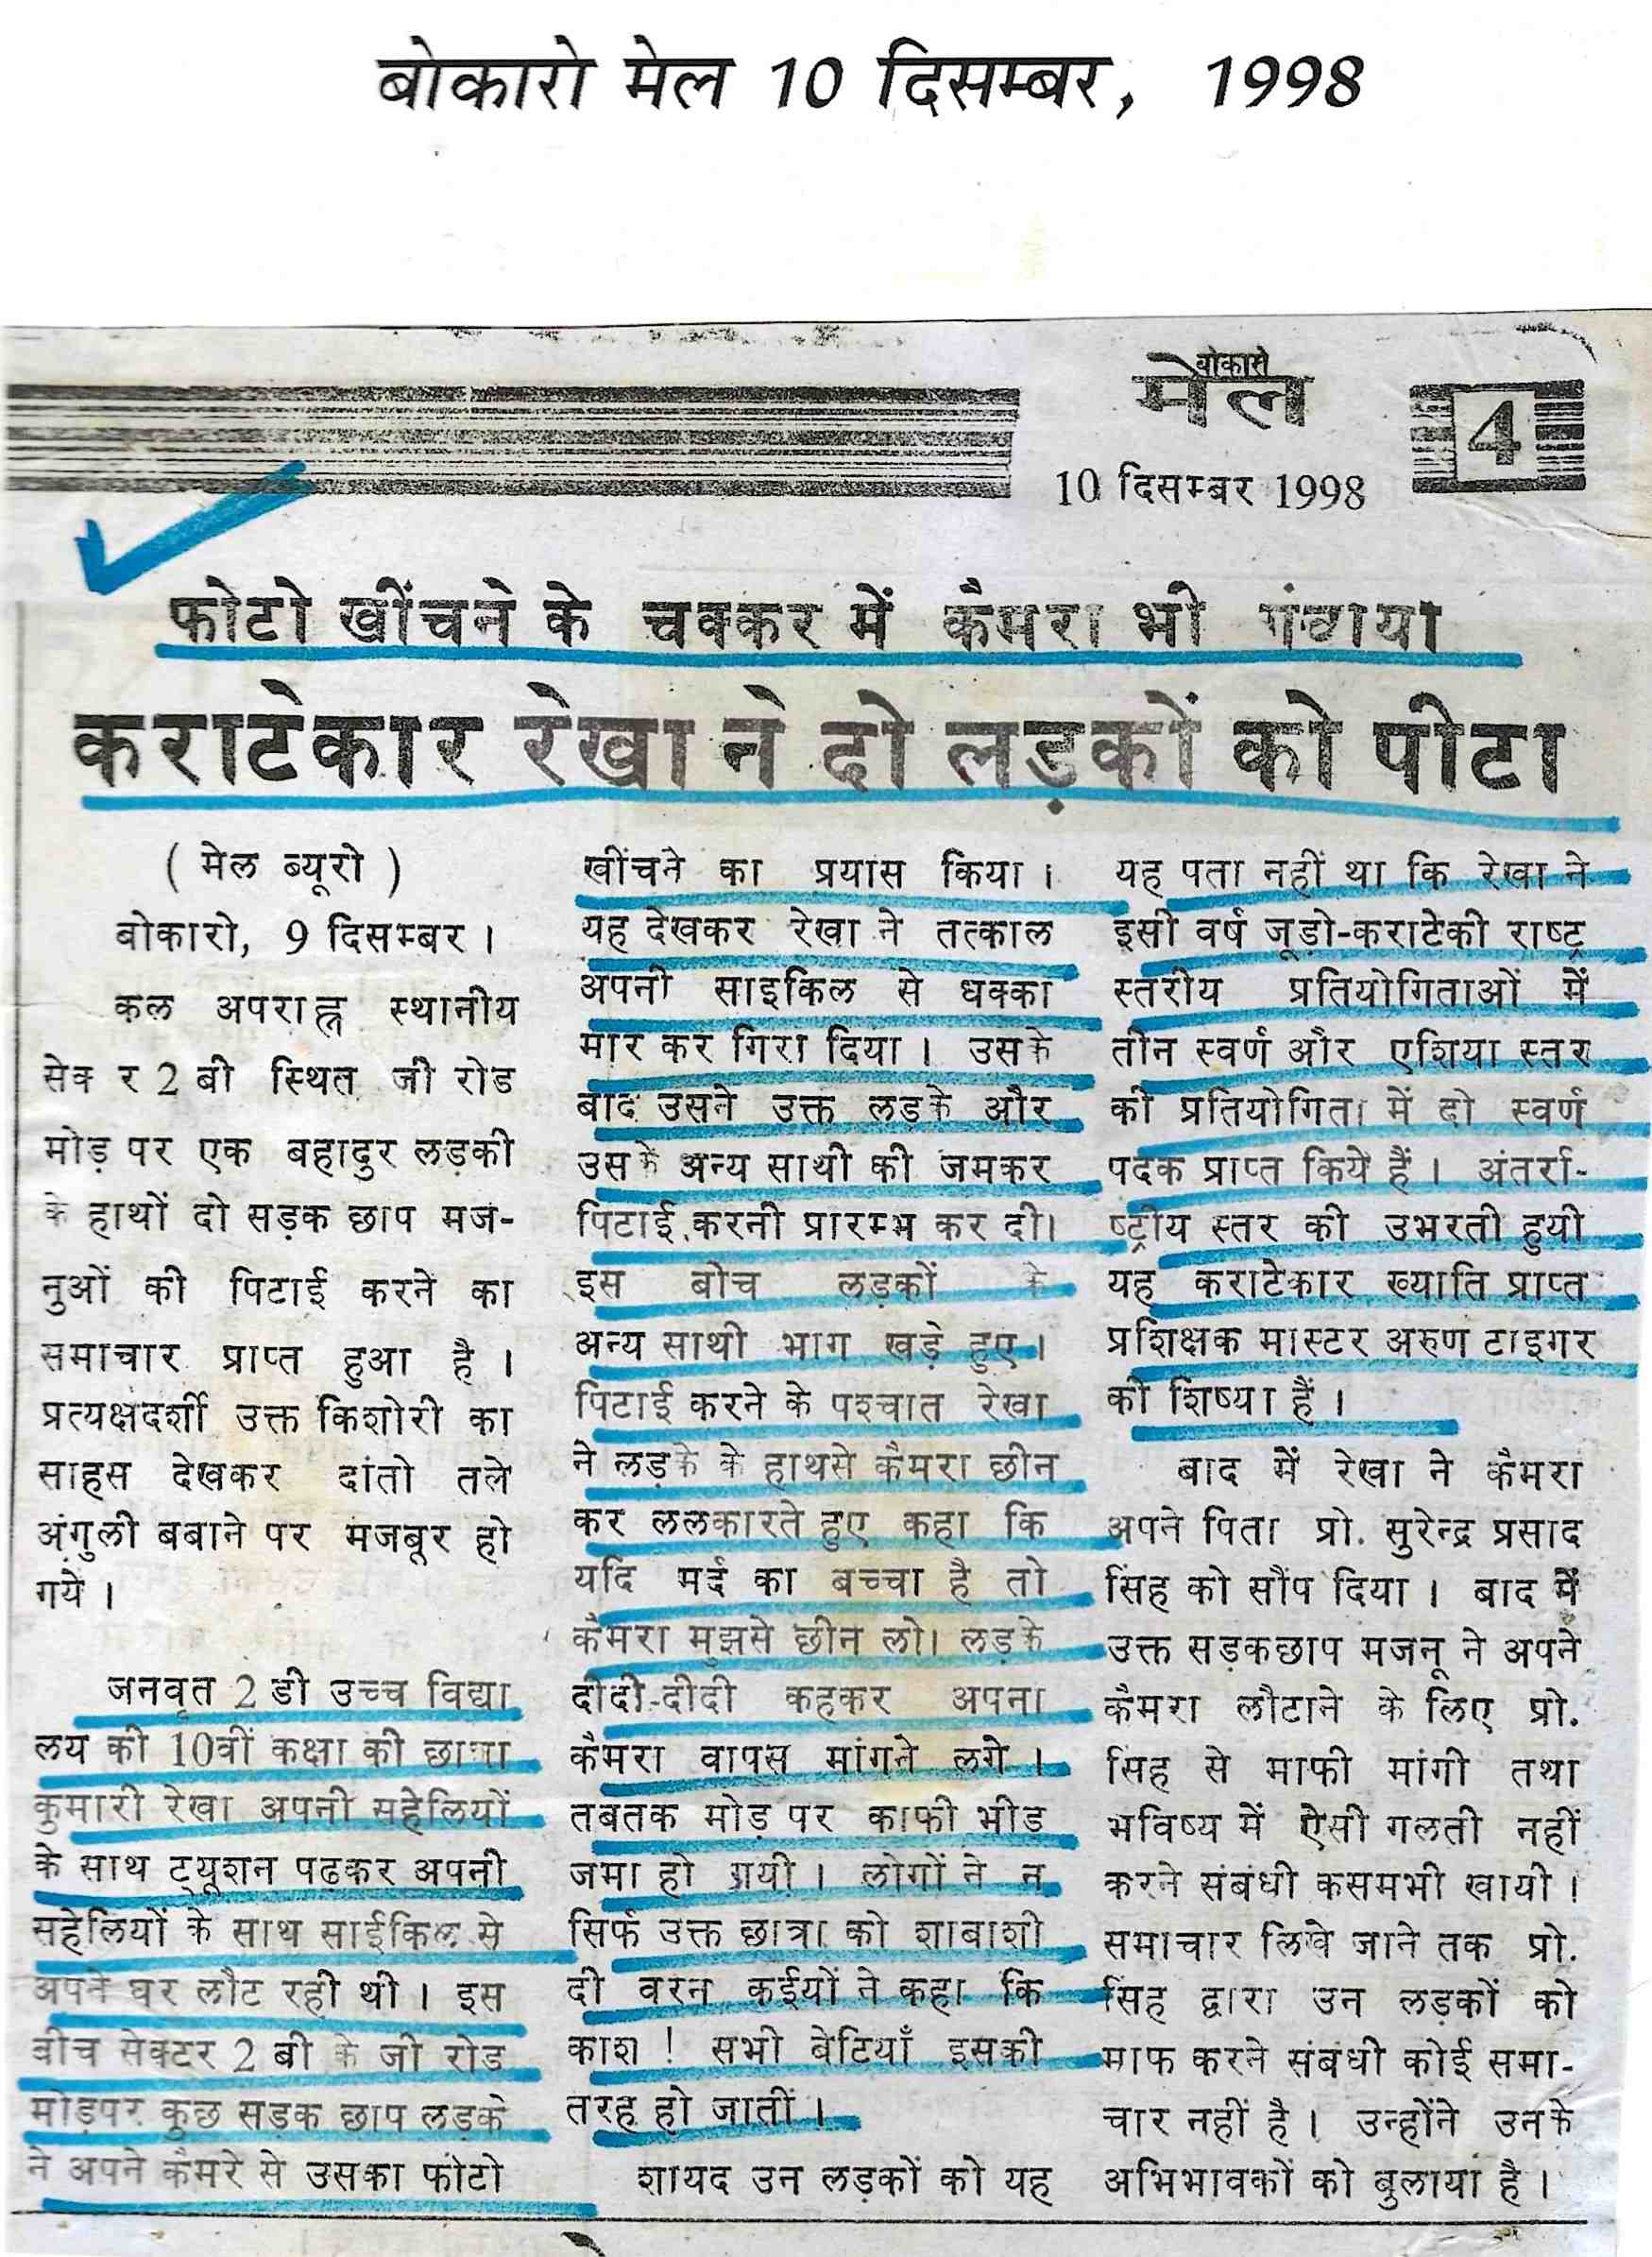 बोकारो मेल 10 दिसम्बर, 1998
बोकारो
मेल
4
10 दिसम्बर 1998
फोटो खींचने के चक्कर में कैमरा भी गंवाया
कराटेकार रेखा ने दो लड़कों को पीटा
( मेल ब्यूरो )
बोकारो, 9 दिसम्बर ।
कल अपराह्न स्थानीय
सेक र 2 बी स्थित जी रोड
मोड़ पर एक बहादुर लड़की
के हाथों दो सड़क छाप मज-
नुओं की पिटाई करने का
समाचार प्राप्त हुआ है ।
प्रत्यक्षदर्शी उक्त किशोरी का
साहस देखकर दांतो तले
अंगुली बबाने पर मजबूर हो
गये ।
जनवृत 2 डी उच्च विद्या
लय की 10वीं कक्षा की छात्रा
कुमारी रेखा अपनी सहेलियों
के साथ ट्यूशन पढकर अपनी
सहेलियों के साथ साईकिल से
अपने घर लौट रही थी । इस
बीच सेक्टर 2 बी के जी रोड
मोड़पर कुछ सड़क छाप लड़के
ने अपने कैमरे से उसका फोटो
खींचने का प्रयास किया ।
यह देखकर रेखा ने तत्काल
अपनी साइकिल से धक्का
मार कर गिरा दिया । उसके
बाद उसने उक्त लड़के और
उसके अन्य साथी की जमकर
पिटाई करनी प्रारम्भ कर दी।
इस बीच लड़कों के
अन्य साथी भाग खड़े हुए ।
पिटाई करने के पश्चात रेखा
ने लड़के के हाथसे कैमरा छीन
कर ललकारते हुए कहा कि
यदि मर्द का बच्चा है तो
कैमरा मुझसे छीन लो। लड़के
दीदी-दीदी कहकर अपना
कैमरा वापस मांगने लगे ।
तबतक मोड़ पर काफी भीड
जमा हो गयी । लोगों ने न
सिर्फ उक्त छात्रा को शाबाशी
दी वरन कईयों ने कहा कि
काश ! सभी बेटियाँ इसकी
तरह हो जातीं ।
शायद उन लड़कों को यह
यह पता नहीं था कि रेखा ने
इसी वर्ष जूडो-कराटेकी राष्ट्र
स्तरीय प्रतियोगिताओं में
तीन स्वर्ण और एशिया स्तर
की प्रतियोगिता में दो स्वर्ण
पदक प्राप्त किये हैं । अंतर्रा-
ष्ट्रीय स्तर की उभरती हुयी
यह कराटेकार ख्याति प्राप्त
प्रशिक्षक मास्टर अरुण टाइगर
की शिष्या हैं ।
बाद में रेखा ने कैमरा
अपने पिता प्रो. सुरेन्द्र प्रसाद
सिंह को सौंप दिया । बाद में
उक्त सड़कछाप मजनू ने अपने
कैमरा लौटाने के लिए प्रो.
सिंह से माफी मांगी तथा
भविष्य में ऐसी गलती नहीं
करने संबंधी कसमभी खायी ।
समाचार लिखे जाने तक प्रो.
सिंह द्वारा उन लड़कों को
माफ करने संबंधी कोई समा-
चार नहीं है । उन्होंने उनके
अभिभावकों को बुलाया है ।